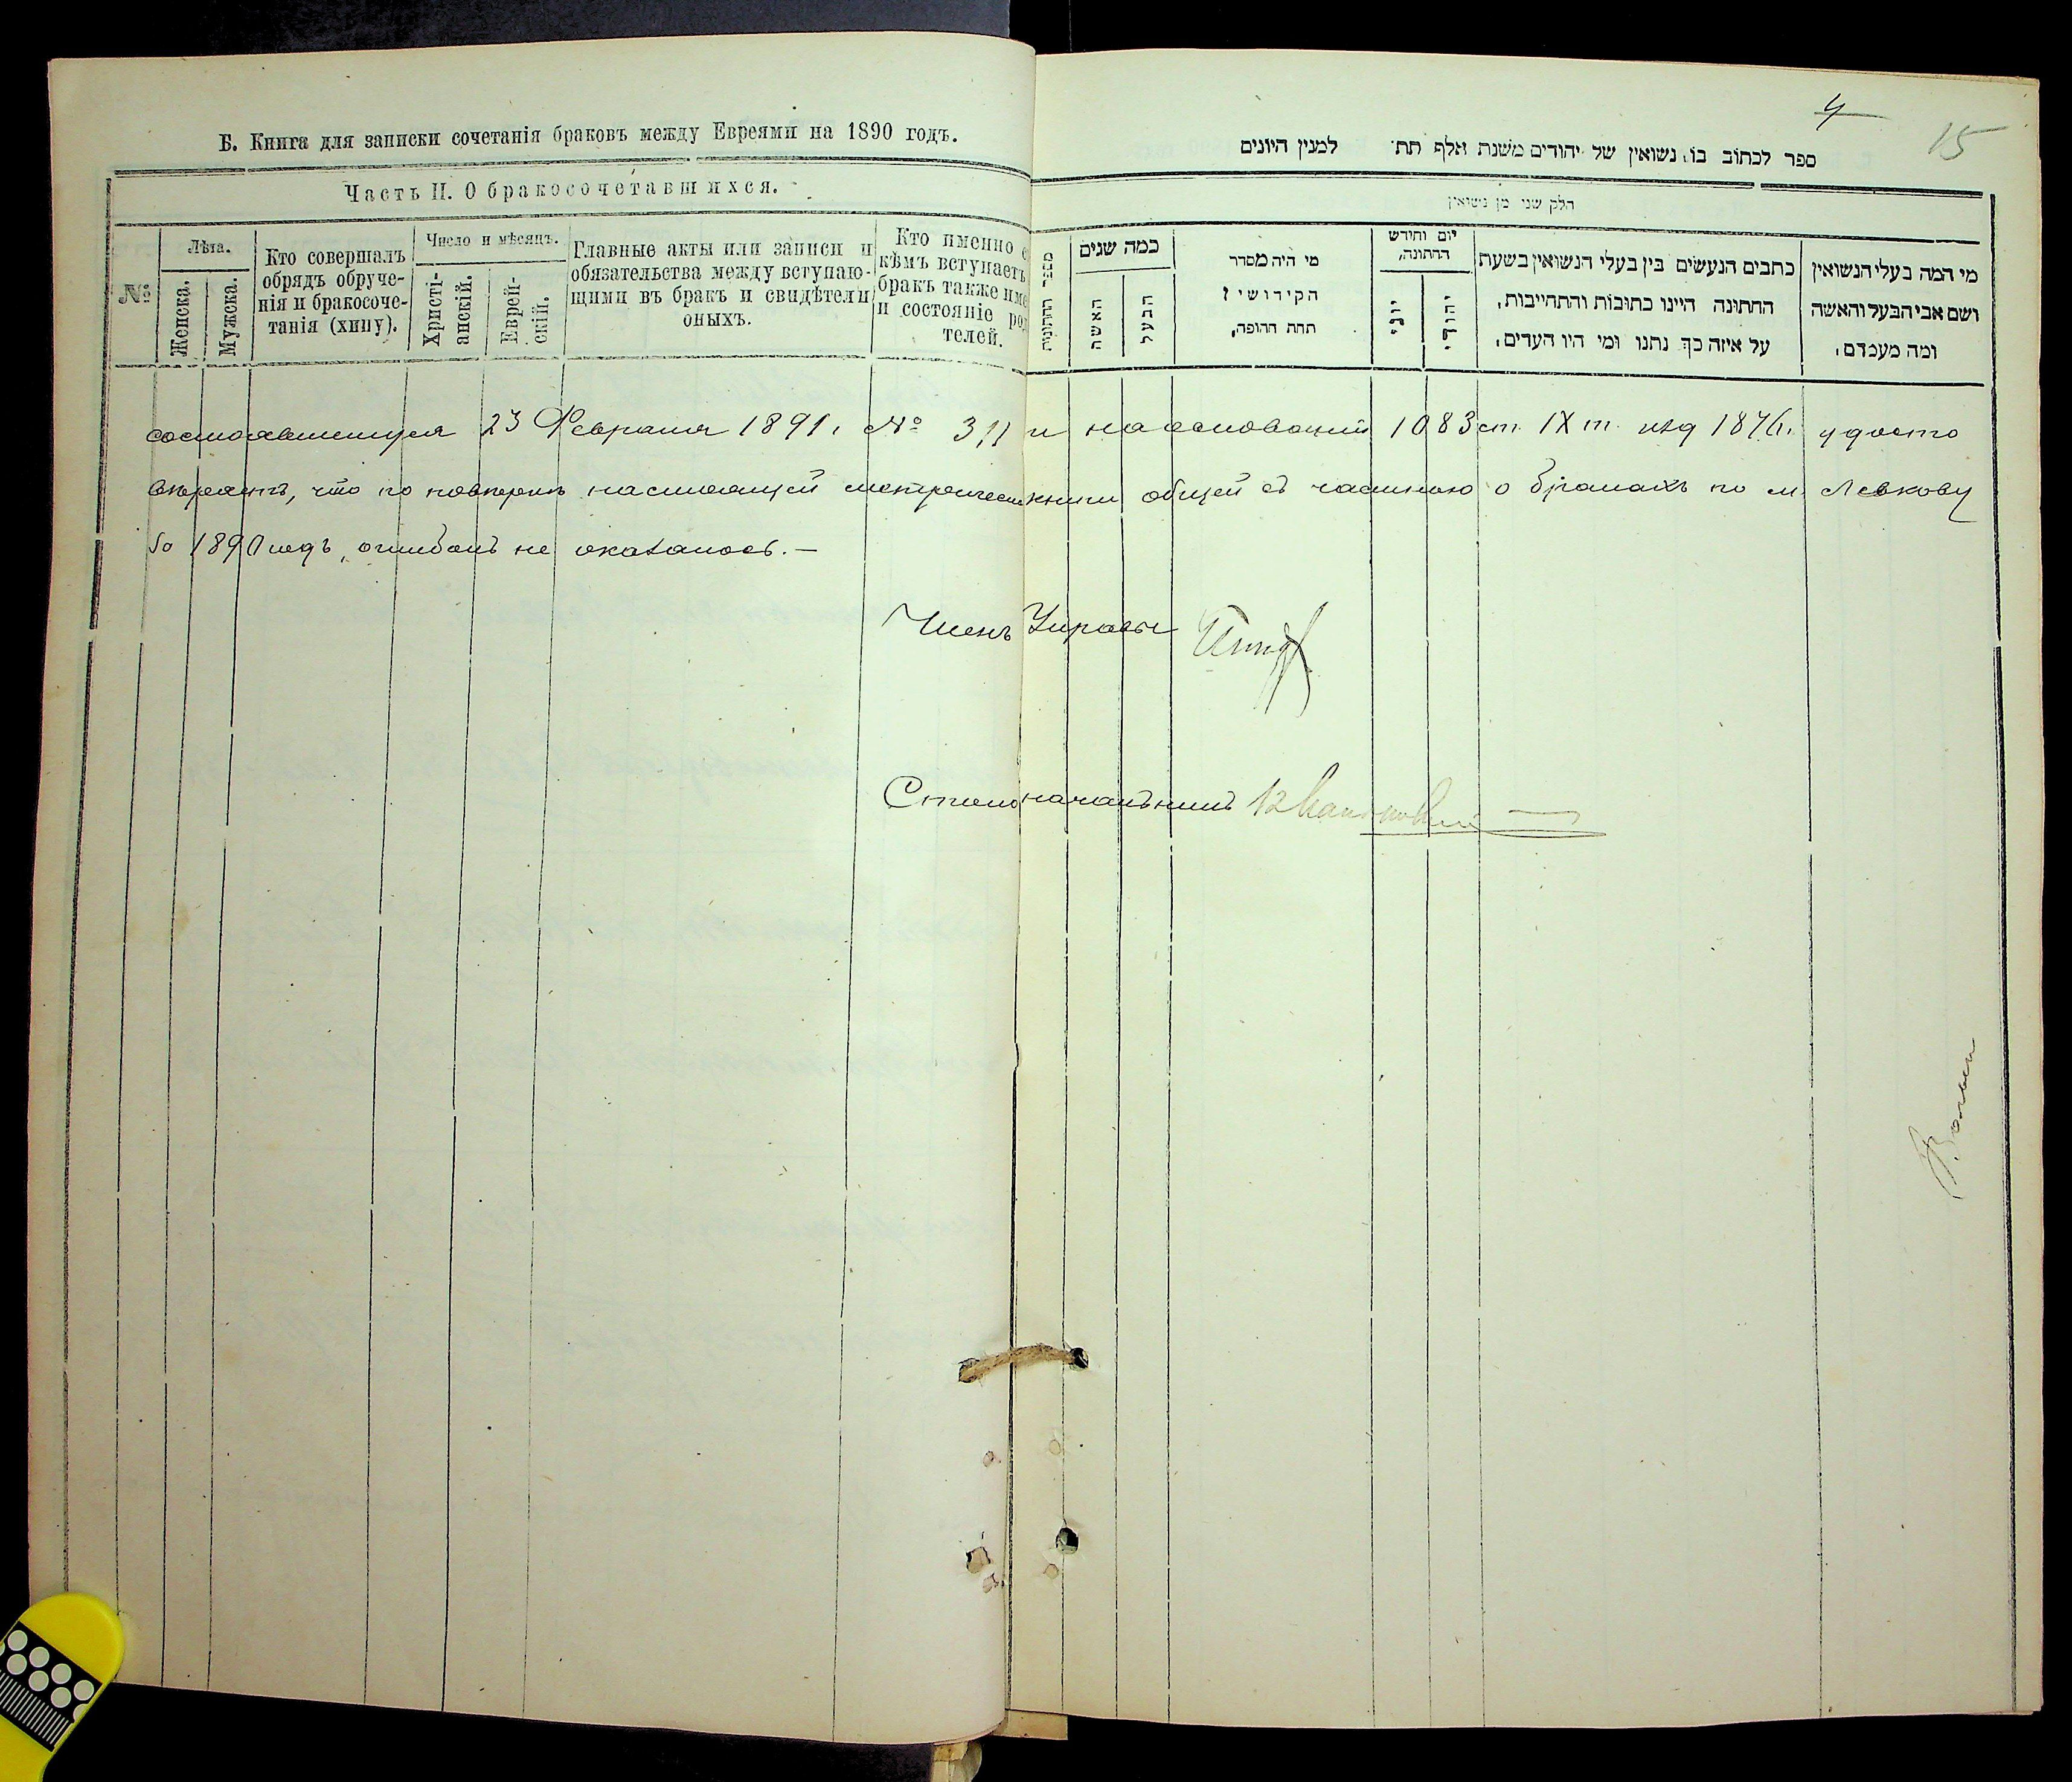 Б. Книга для записки сочетанія браковъ между Евреями на 1890 годъ.
Часть II. О бракосочетавшихся.
№
Лѣта.
Женска.
Мужска.
Кто совершалъ
обрядъ обруче-
нія и бракосоче-
танія (хипу).
Число и мѣсяцъ.
Христі-
анскій.
Еврей-
скій.
Главные акты или записи и
обязательства между вступаю-
щими въ бракъ и свидѣтели
оныхъ.
Кто именно с
кѣмъ вступаетъ
бракъ также име
и состояніе род
телей.
4
15
ספר לכתוב בו נשואין של יהודים משנת אלף תת למנין היונים
חלק שני מן נשואין
מספר החתונות
כמה שנים
האשה
הבעל
מי היה מסדר
הקידושין
תחת החופה,
יום וחדש
החתונה,
יוני
יהודי
כתבים הנעשים בין בעלי הנשואין בשעת
החתונה היינו כתובות והתחייבות,
על איזה כך נתנו ומי היו העדים,
מי המה בעלי הנשואין
ושם אבי הבעל והאשה
ומה מעמדם,
состоявшемуся 23 Февраля 1891 г. № 311 и на основаніи 1083 ст. IX т. изд 1876 г. удосто
вѣряетъ, что по повѣркѣ настоящей метрической книги общей съ частью о бракахъ по м. Левкову
за 1890 годъ, ошибокъ не оказалось. —
Членъ Управы
Столоначальникъ